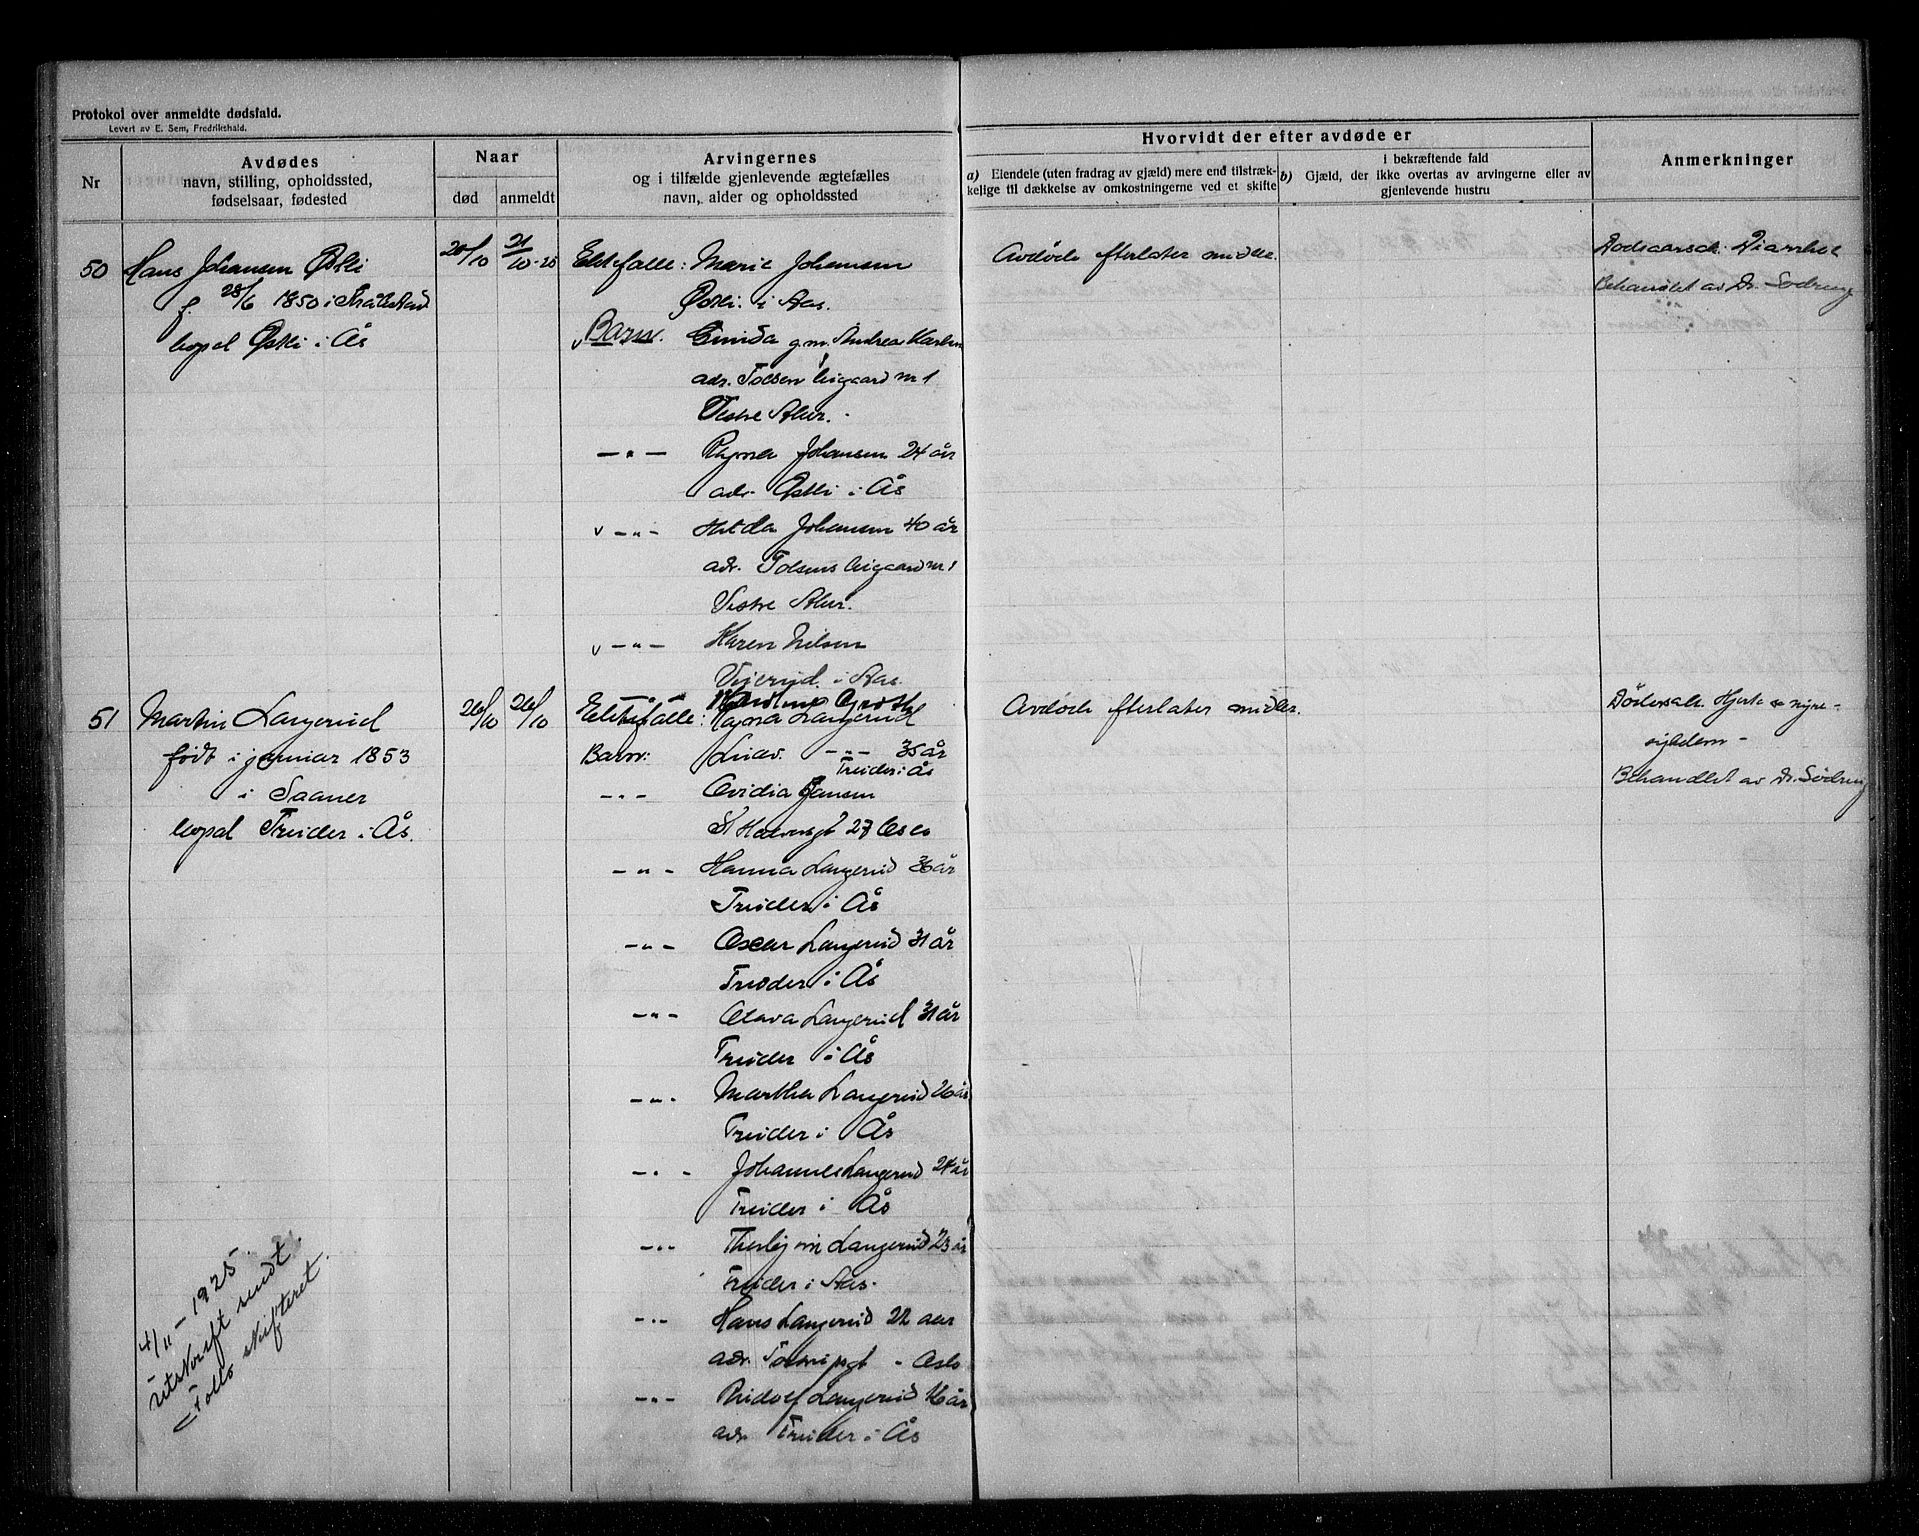 Protokol over anmeldte dødsfald.
Levert av E. Sem, Fredrikshald.
Nr
Avdødes
navn, stilling, opholdssted,
fødselsaar, fødested
Naar
død
anmeldt
Arvingernes
og i tilfælde gjenlevende ægtefælles
navn, alder og opholdssted
Hvorvidt der efter avdøde er
a) Eiendele (uten fradrag av gjæld) mere end tilstræk-
kelige til dækkelse av omkostningerne ved et skifte
i bekræftende fald
b) Gjæld, der ikke overtas av arvingerne eller av
gjenlevende hustru
Anmerkninger
50
Hans Johansen Østli
f. 28/6 1850 i
bopel Østli i Ås
20/10
21/10-25
Ektefalle: Marie Johansen
Østli i Aas.
Barn. g.m. Andrea Karlsen
adr. Tolsen bigaard nr 1
Vestre Aker.
-"- Ragna Johansen 24 år
adr. Østli i Ås
v -"- Hilda Johansen 40 år
adr. Tolsens bigaard nr 1
Vestre Aker.
v -"- Karen Nilsen
i Aas.
Avdøde efterlater midler.
Dødsaarsak: Diarrhe
Behandlet av Dr. Sødring
51
Martin Langerud
født i januar 1853
i Saaner
bopel Treider i Ås.
26/10
26/10
Ektefalle: Langerud
Barn: -"- 35 år
Treider i Ås
-"- Ovidia Jensen
27 Oslo
-"- Hanna Langerud 36 år
Treider i Ås
-"- Oscar Langerud 31 år
Treider i Ås
-"- Olava Langerud 31 år
Treider i Ås
-"- Martha Langerud 26 år
Treider i Ås
-"- Johannes Langerud 24 år
Treider i Ås
-"- Langerud 23 år
Treider i Aas.
-"- Hans Langerud 22 aar
adr. - Oslo
-"- Rudolf Langerud 16 år
adr. Treider i Ås
Avdøde efterlater midler.
Dødsårsak. Hjerte og nyre-
sykdom -
Behandlet av Dr. Sødring
4/11 - 1925.
Utskrift sendt
Follo skifteret.